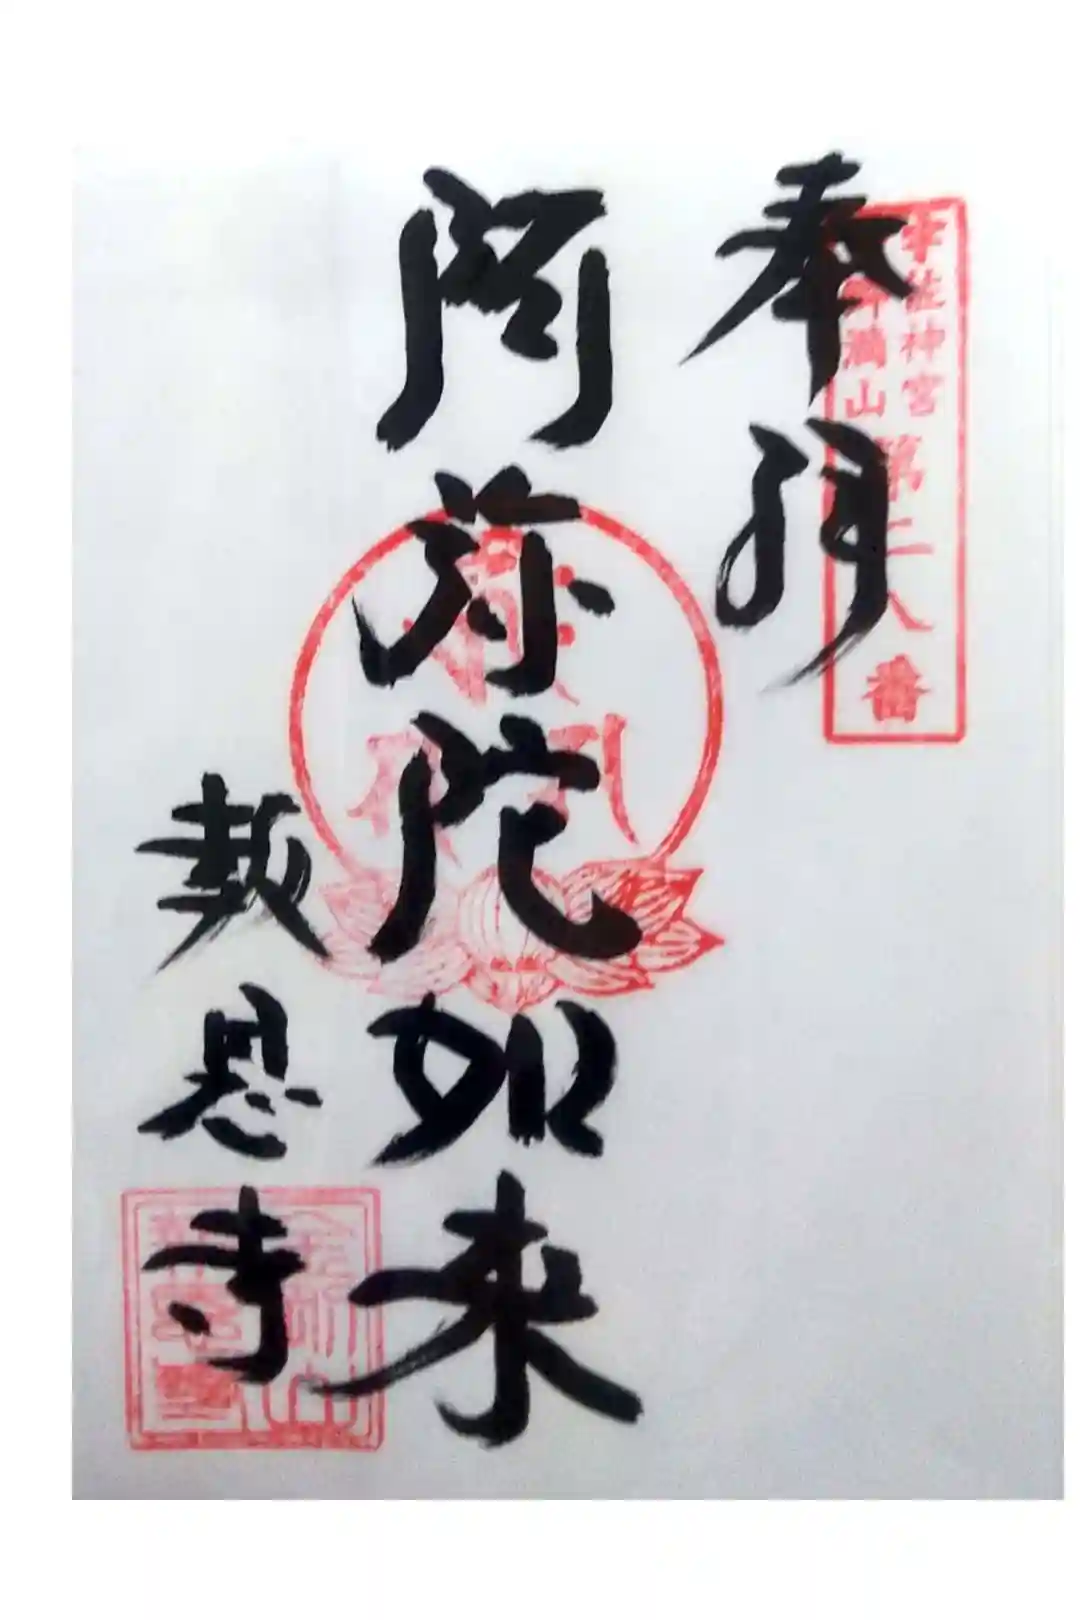 宇佐神宮
六郷満山
第二八番
奉拝
阿弥陀如来
報恩寺